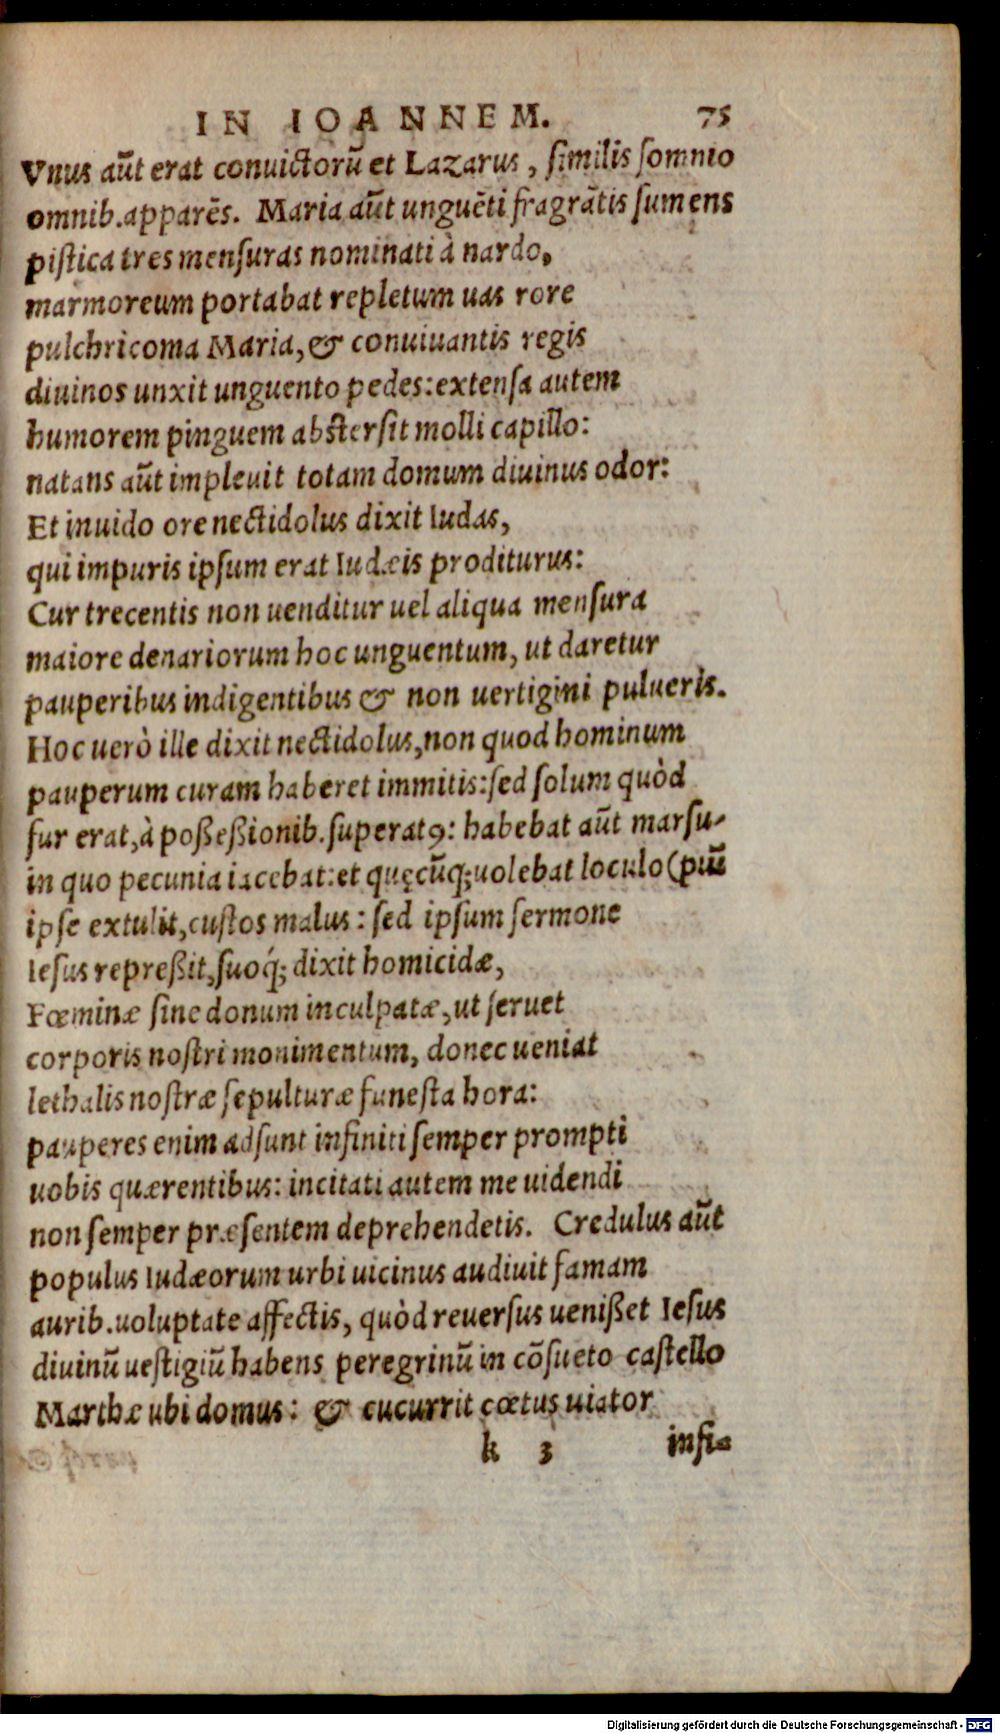 IN IOANNEM. 75
Vnus aũt erat conuictorũ et Lazarus, ſimilis ſomnio
omnib. apparẽs. Maria aũt unguẽti fragrãtis ſumens
piſtica tres menſuras nominati à nardo,
marmoreum portabat repletum uas rore
pulchricoma Maria, & conuiuantis regis
diuinos unxit unguento pedes: extenſa autem
humorem pinguem abſterſit molli capillo:
natans aũt impleuit totam domum diuinus odor:
Et inuido ore nectidolus dixit Iudas,
qui impuris ipſum erat Iudæis proditurus:
Cur trecentis non uenditur uel aliqua menſura
maiore denariorum hoc unguentum, ut daretur
pauperibus indigentibus & non uertigini pulueris.
Hoc uerò ille dixit nectidolus, non quod hominum
pauperum curam haberet immitis: ſed ſolum quòd
fur erat, à poßeßionib. ſuperatꝰ: habebat aũt marſu-
in quo pecunia iacebat: et quęcũq; uolebat loculo (piũ
ipſe extulit, cuſtos malus: ſed ipſum ſermone
Ieſus repreßit, ſuoq́; dixit homicidæ,
Fœminæ ſine donum inculpatæ, ut ſeruet
corporis noſtri monimentum, donec ueniat
lethalis noſtræ ſepulturæ funeſta hora:
pauperes enim adſunt infiniti ſemper prompti
uobis quærentibus: incitati autem me uidendi
non ſemper præſentem deprehendetis. Credulus aũt
populus Iudæorum urbi uicinus audiuit famam
aurib. uoluptate affectis, quòd reuerſus uenißet Ieſus
diuinũ ueſtigiũ habens peregrinũ in cõſueto caſtello
Marthæ ubi domus: & cucurrit cœtus uiator
k 3 infi-
Digitalisierung gefördert durch die Deutsche Forschungsgemeinschaft - DFG